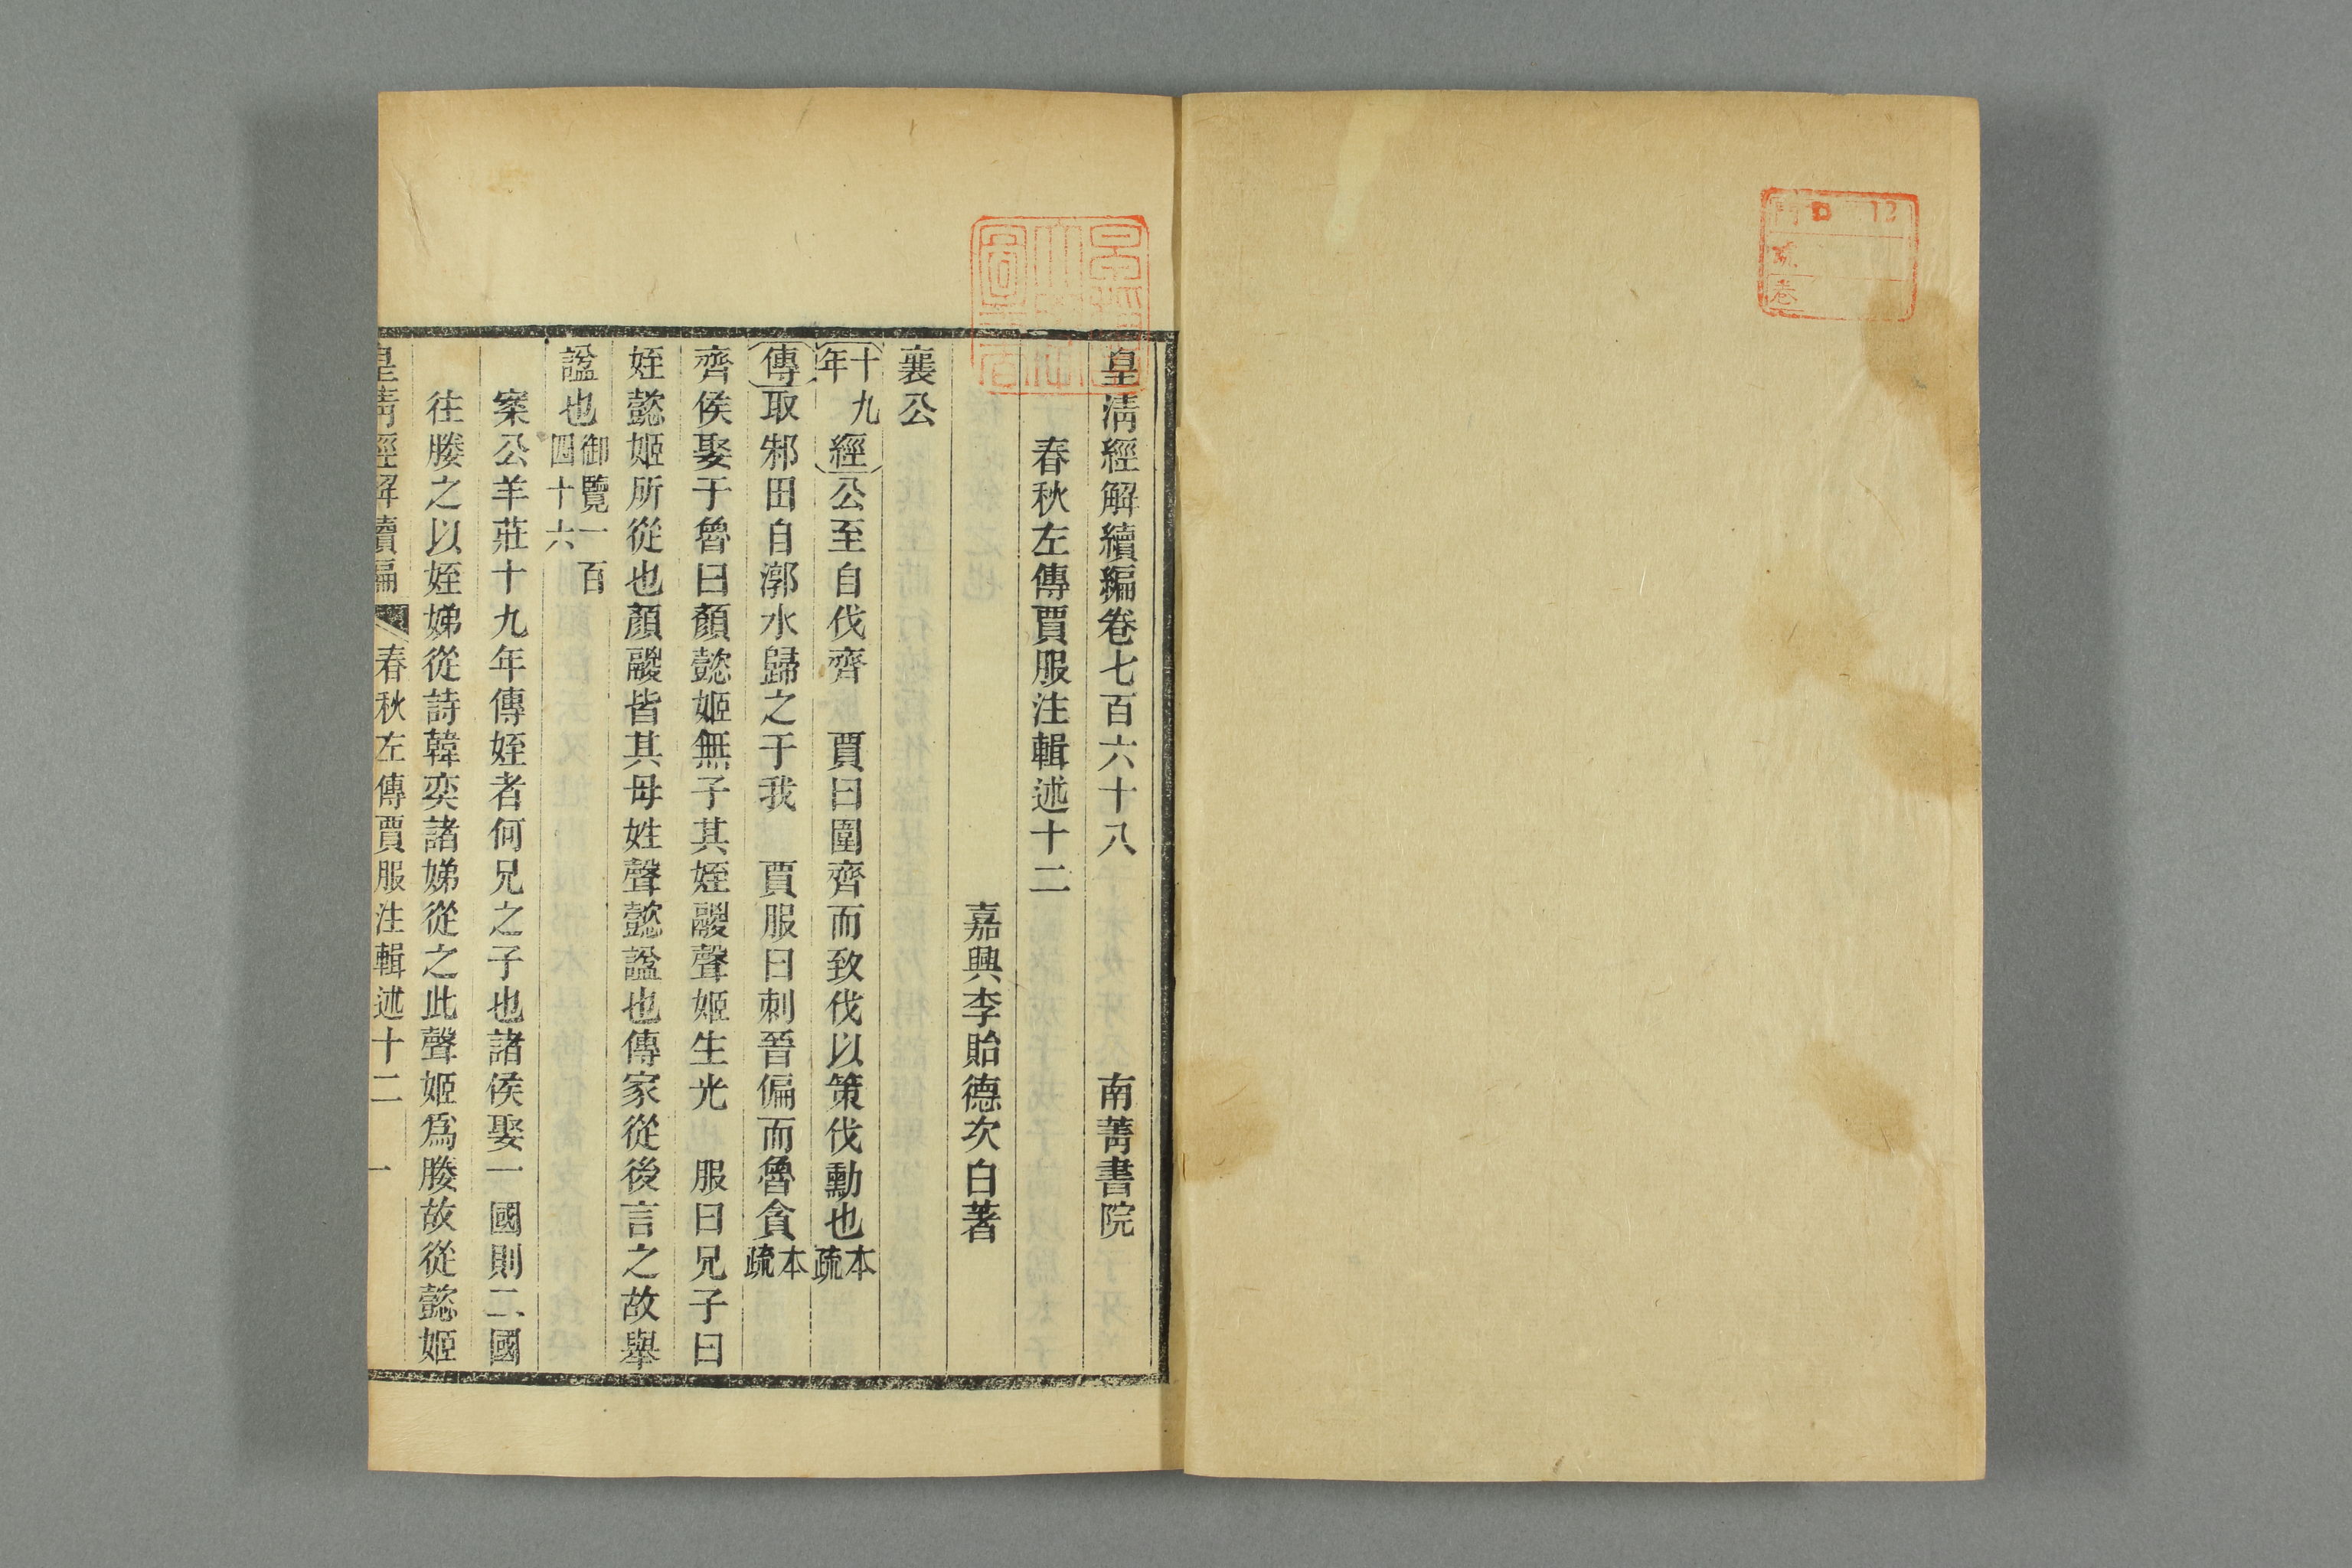 皇淸經解續編卷七百六十八　南菁書院
春秋左傳賈服注輯述十二
嘉興李貽德次白著
襄公
十九年經公至自伐齊　賈曰圍齊而致伐以策伐勳也本疏
傳取邾田自漷水歸之于我　賈服曰刺晉偏而魯貪本疏
齊侯娶于魯曰顏懿姬無子其姪鬷聲姬生光　服曰兄子曰
姪懿姬所從也顏鬷皆其母姓聲懿諡也傳家從後言之故舉
諡也御覽一百四十六
案公羊莊十九年傳姪者何兄之子也諸侯娶一國則二國
往媵之以姪娣從詩韓奕諸娣從之此聲姬爲媵故從懿姬
皇淸經解續編　春秋左傳賈服注輯述十二　一